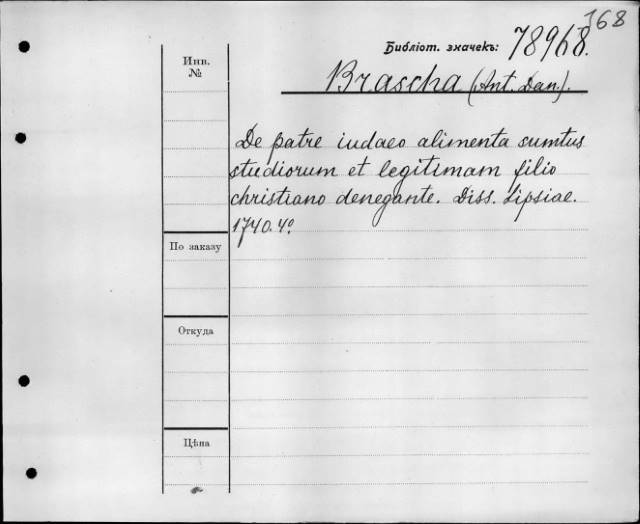 168
Библіот. значекъ: 78968.
Инв.
№
Brascha (Ant. Dan.).
De patre iudaeo alimenta sumtus
studiorum et legitimam filio
christiano denegante. Diss. Lipsiae.
1740. 4º
По заказу
Откуда
Цѣна